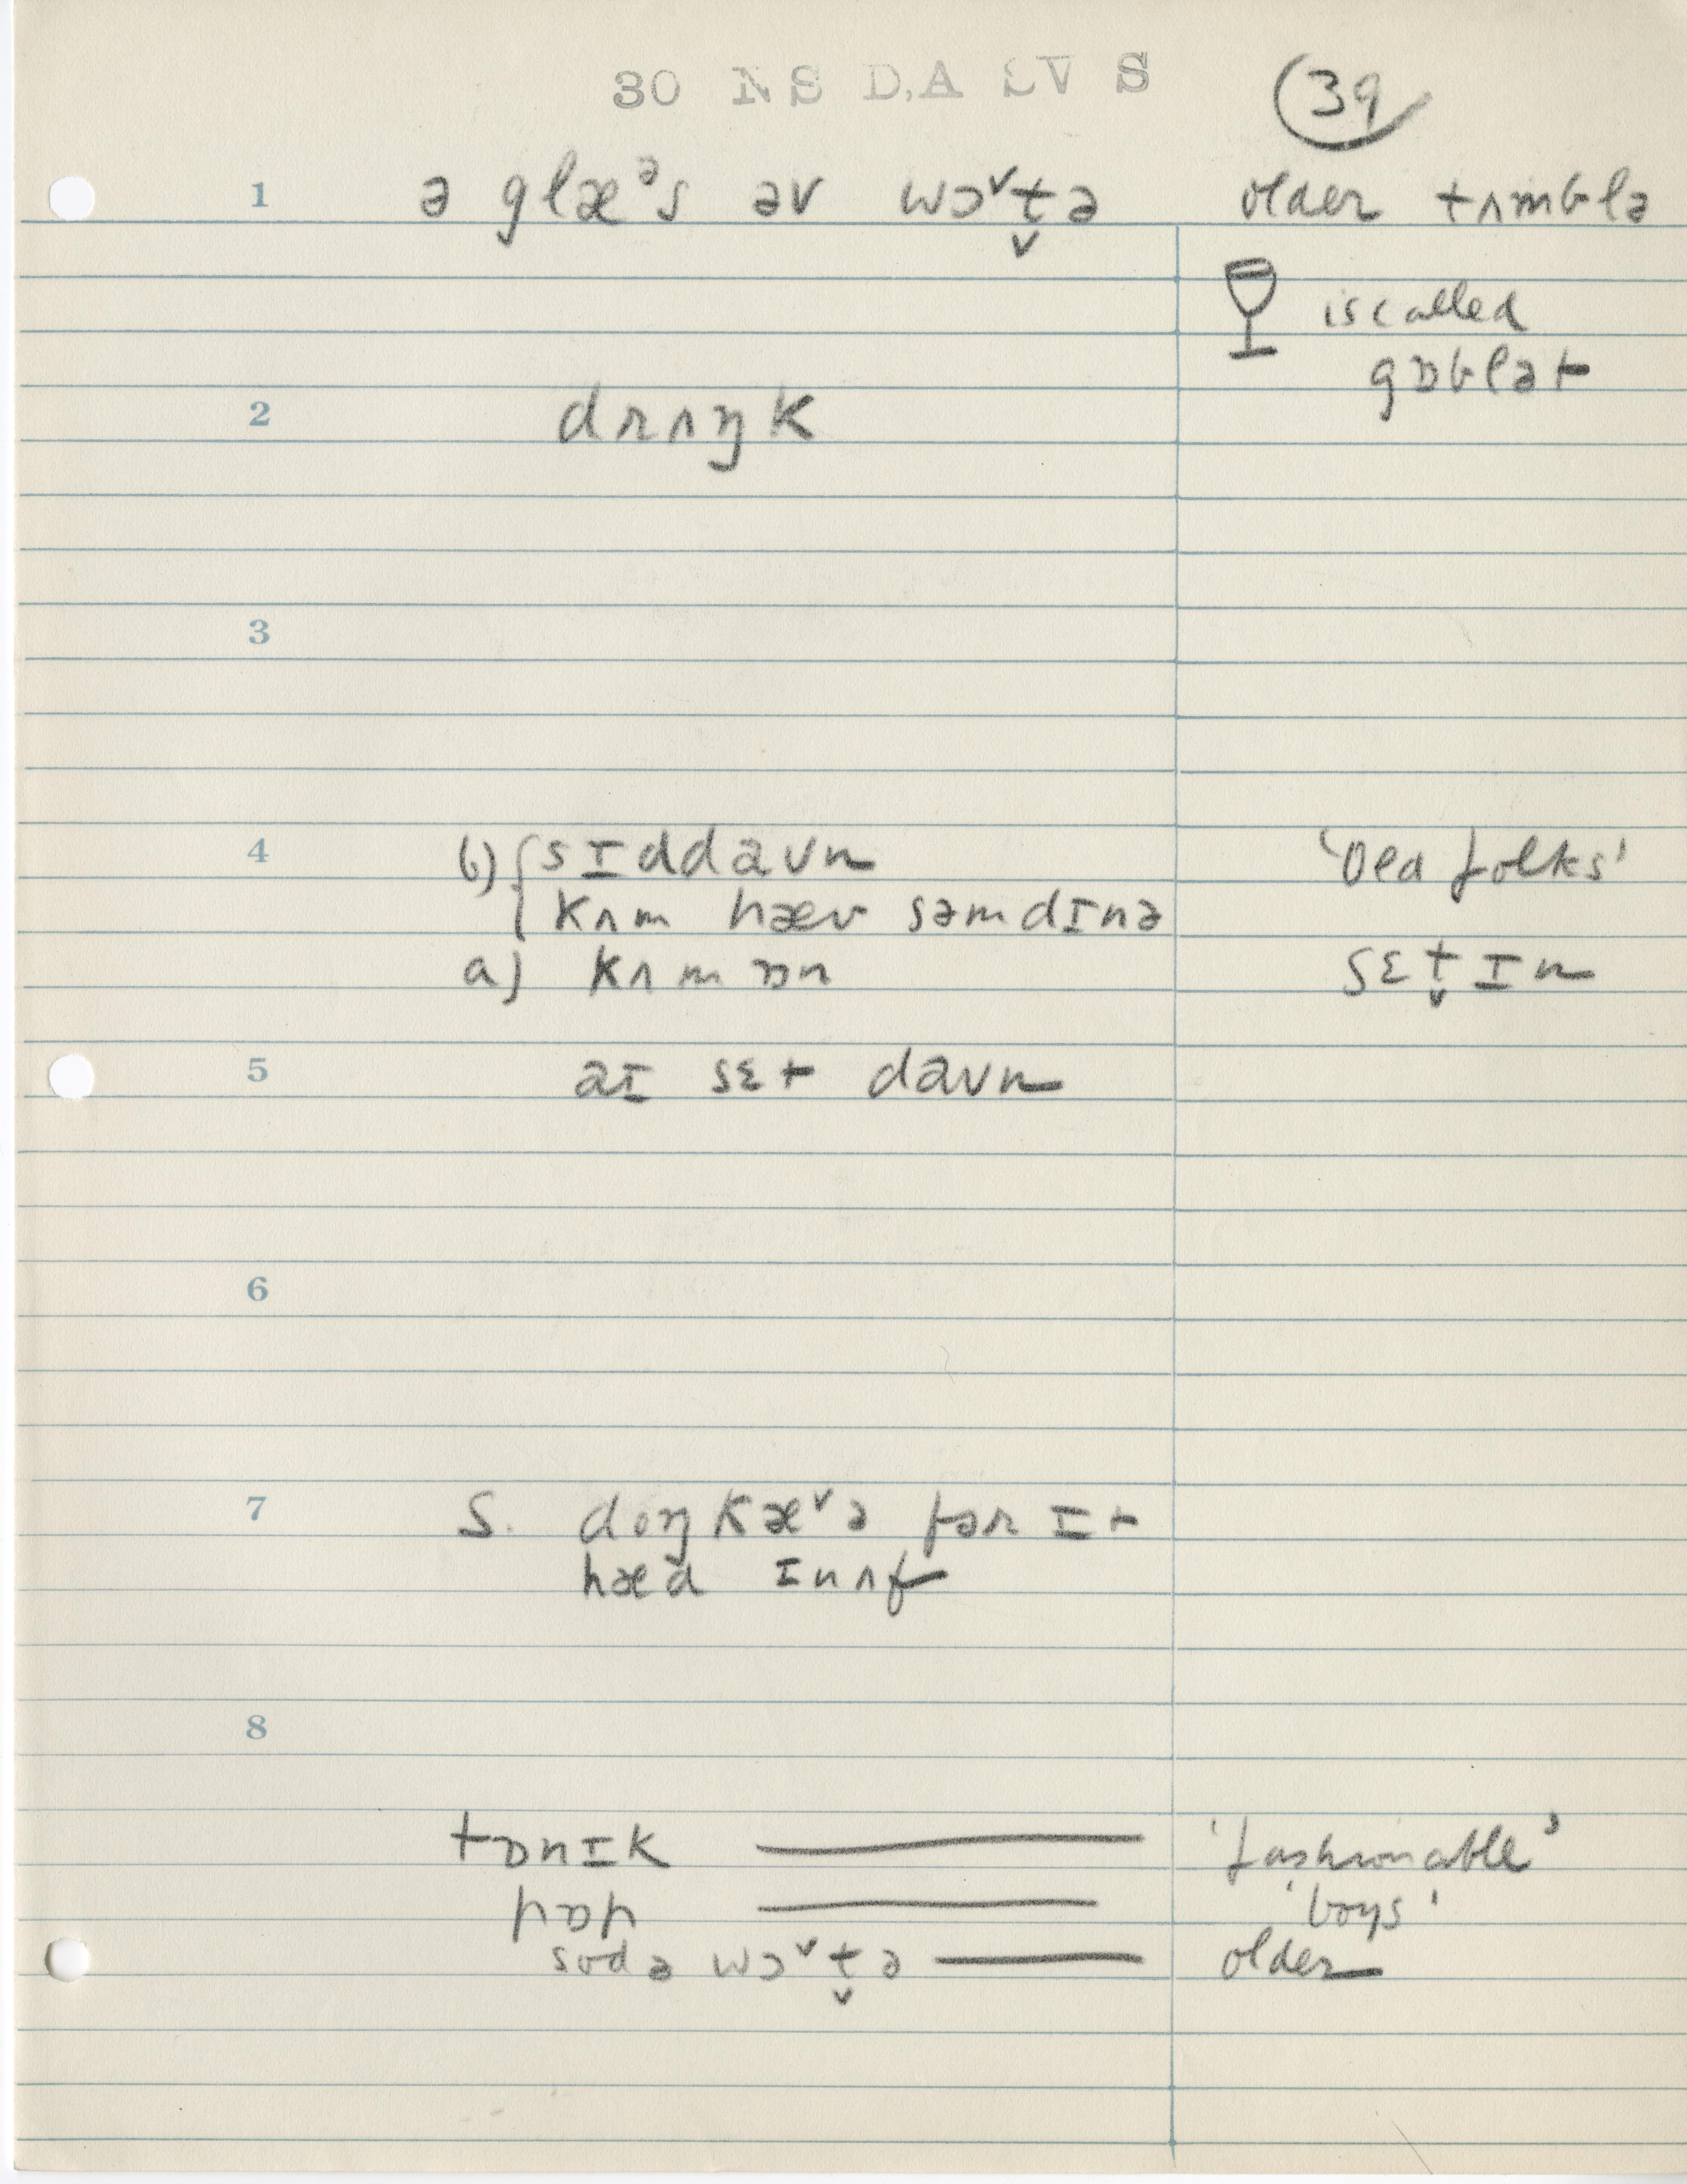 30 NS D.A EV S
39
1 ə glæᵊs əv wɔ˅t̬ə older tʌmblə
is called
gɒblət
2 drʌŋk
3
4 b) { sɪddaʊn 'Old folks'
kʌm hæv səmdɪnə
a) kʌm ɒn sɛt̬ɪn
5 aɪ sɛt daʊn
6
7 S. doŋkæ˅ə fər ɪt
hæd ɪnʌf
8
tɒnɪk —— 'fashionable'
pɒp —— 'boys'
sodə wɔ˅t̬ə —— older